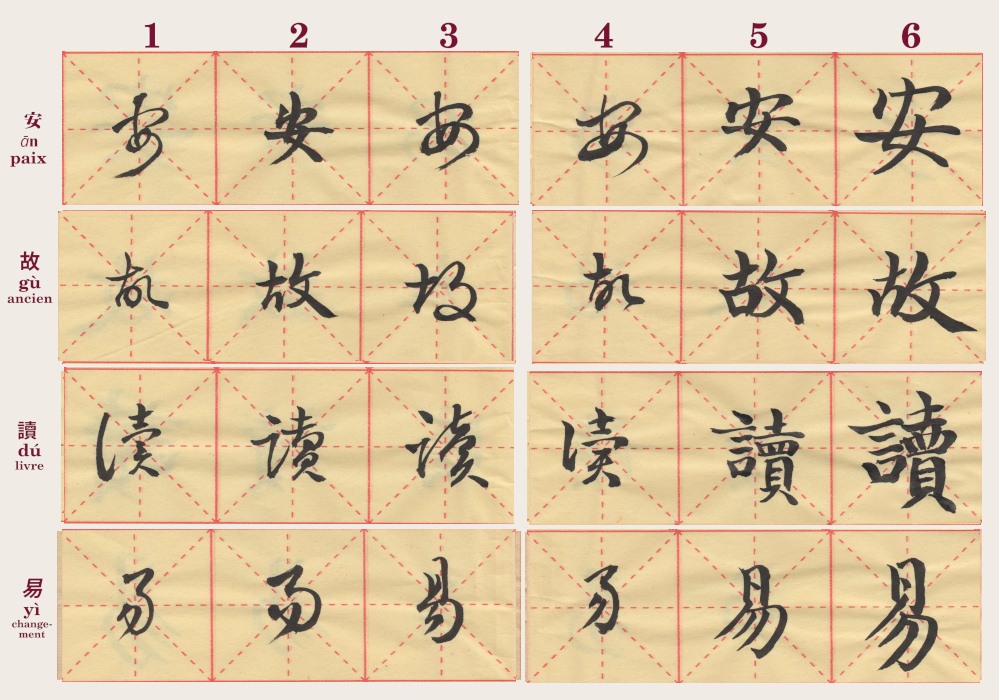 1 2 3 4 5 6
安
ān
paix
安 安 安 安 安 安
故
gù
ancien
故 故 故 故 故 故
讀
dú
livre
读 读 读 读 讀 讀
易
yì
change-
ment
易 易 易 易 易 易